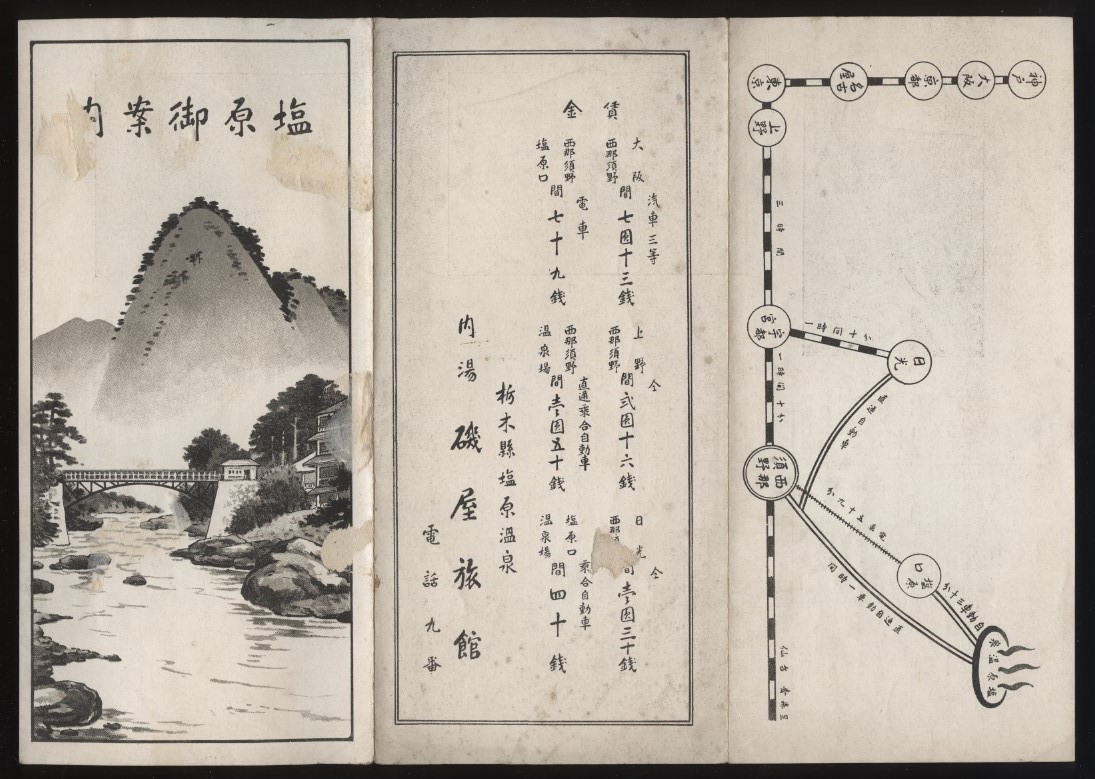 塩原御案内
賃金
汽車三等
大阪 西那須野 間 七圓十三銭
上野 西那須野 間 弐圓十六銭 仝
日光 間 壱圓三十銭 仝
電車
西那須野 塩原口 間 七十九銭
直通乗合自動車
西那須野 温泉場 間 壱圓五十銭
乗合自動車
塩原口 温泉場 間 四十銭
栃木縣塩原温泉
内湯 磯屋旅館
電話九番
神戸
大阪
京都
名古屋
東京
上野
三時間
宇都宮
日光
一時間十分
直通自動車
西那須野
電車五十九分
塩原口
自動車三十分
直通自動車一時間
塩原温泉
仙台